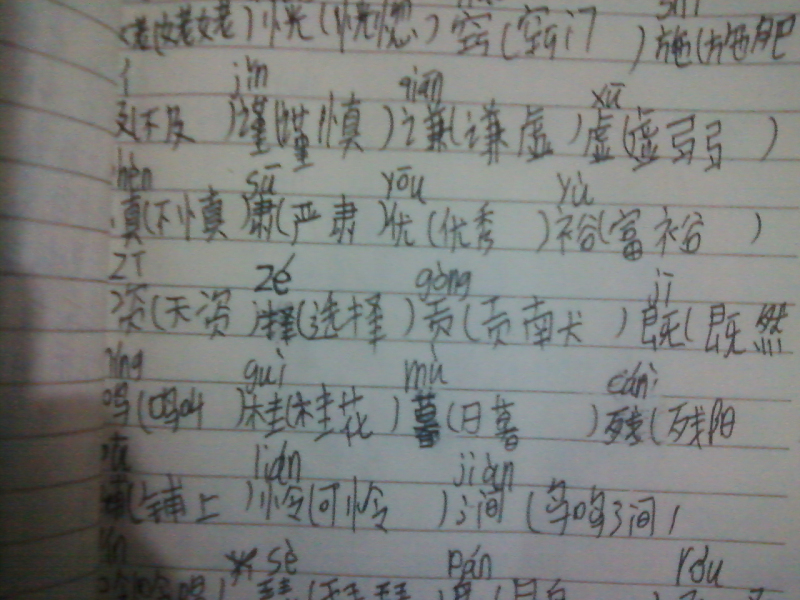 姥(姥姥)恍(恍惚)窍(窍门)施(施肥
jǐn qiān xū
及(不及)谨(谨慎)谦(谦虚)虚(虚弱)
shèn sū yōu yù
慎(不慎)肃(严肃)优(优秀)裕(富裕)
zī zé gòng jī
资(天资)择(选择)贡(贡献)既(既然
míng guì mù cán
鸣(鸣叫)桂(桂花)暮(日暮)残(残阳
lián jiàn
铺(铺上)怜(可怜)涧(鸟鸣涧)
sè pán róu